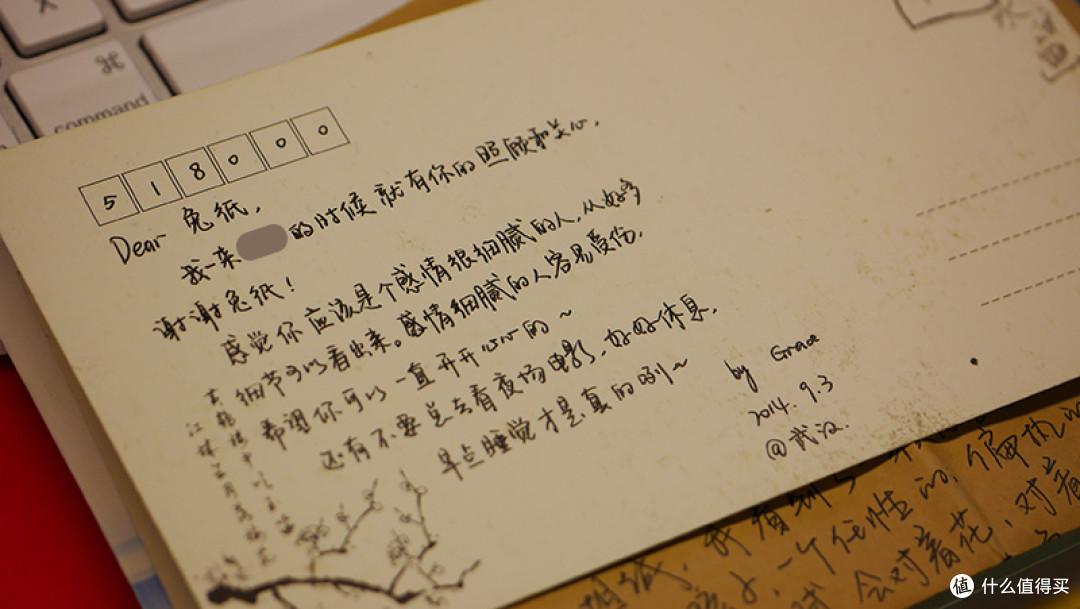 ⌘
command
518000
Dear 兔纸,
我一来 的时候就有你的照顾和关心,
谢谢兔纸!
感觉你应该是个感情很细腻的人,从好多
细节可以看出来。感情细腻的人容易受伤,
希望你可以一直开开心心的~
还有不要总去看夜场电影,好好休息,
早点睡觉才是真的咧~
by Grace
2014.9.3
@武汉.
黄鹤楼中吹玉笛
江城五月落梅花
一个任性的,偏执的
会对着花,对着
值 什么值得买